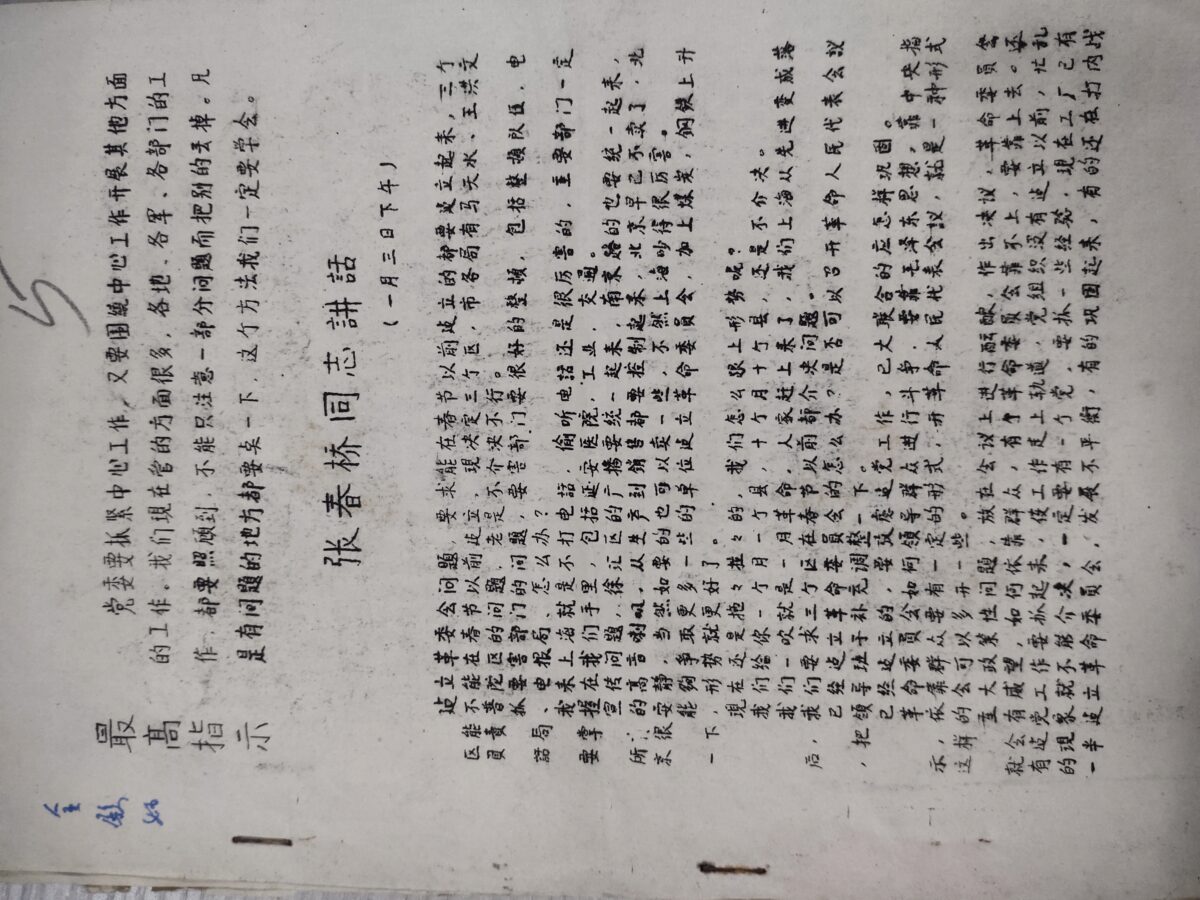 5
最高指示
党委要抓紧中心工作，又要围繞中心工作开展其他方面
的工作。我们現在管的方面很多，各地、各军、各部门的工
作，都要照顾到，不能只注意一部分问题而把别的丢掉。凡
是有问题的地方都要点一下，这个方法我们一定要学会。
张春桥同志講話
（一月三日下午）
建立革委会问题，要求能在春节以前建立的都要建立起来，三个
区能不能在春节以前建立，現决定三个区，市各局有马天水、王洪文
負責普陀区的问题，老是不介决不行。
抓要害部门的问题，要害部门要很好的整顿，包括整顿队伍，电
話局、电报局、怎么办？
我来上海就是不打电話，偷听电話还是很厉害的，重要部门一定
要掌握在我们手里，包括延安医院，工业，交通。
宣传问题，徐汇区的广播要统一起来，南京路的也要统一起来，
所 的高音喇叭，从生产到销售都要控制起来，北京早已不卖了，北
京很安静，当然如要的也可以卖一些，不然上海吵得很厉害。
能夠争取更多一些的单位建立革命委员会，加上煤炭，钢铁上升
一下，形势就更好了。
現在还是拖々拉々的，我们怎么跟上形势呢？
我们给你一个月一个县，十个月十个县，还是不介决。
我们一吹就是一月革命，人家赶上来了，我们上海从先进变成落
后，我们要求三个区在春节以前都介决问题。
已经建立革命委员会的怎么办？是否可以召开革命人民代表会議
，把领导班子补充调整一下。
已经建立的，要致虑建党工作，已大联合的应怎样巩固。
革命委員会如何领导群众进行斗争，要靠毛泽东思想，靠中央指
示，依靠群众要有一定的形式，开革命人民代表会議，就是一种形式
这样的会可以多开一些。
重大政策性问题，放在会议上进行酝酿，作出决议，革命委员会
就会有威望，如何依靠群众，有个革命委员会靠不上，要靠上去。还
有建党工作要抓起来，使工作走上轨道，党组织没有建立以前，忙乱
的現象就不能介决，一定要有一个党，要抓一些经验，現在工厂已有
一半建立革命委員会，发展不平衡，有的巩固起来，有的还在打内战